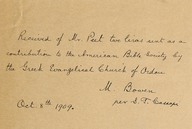 Received of Mr. Peet two liras sent as a
contribution to the American Bible Society by
the Greek Evangelical Church of Ordou.
M. Bowen
per S. T.
Oct 8th 1909.